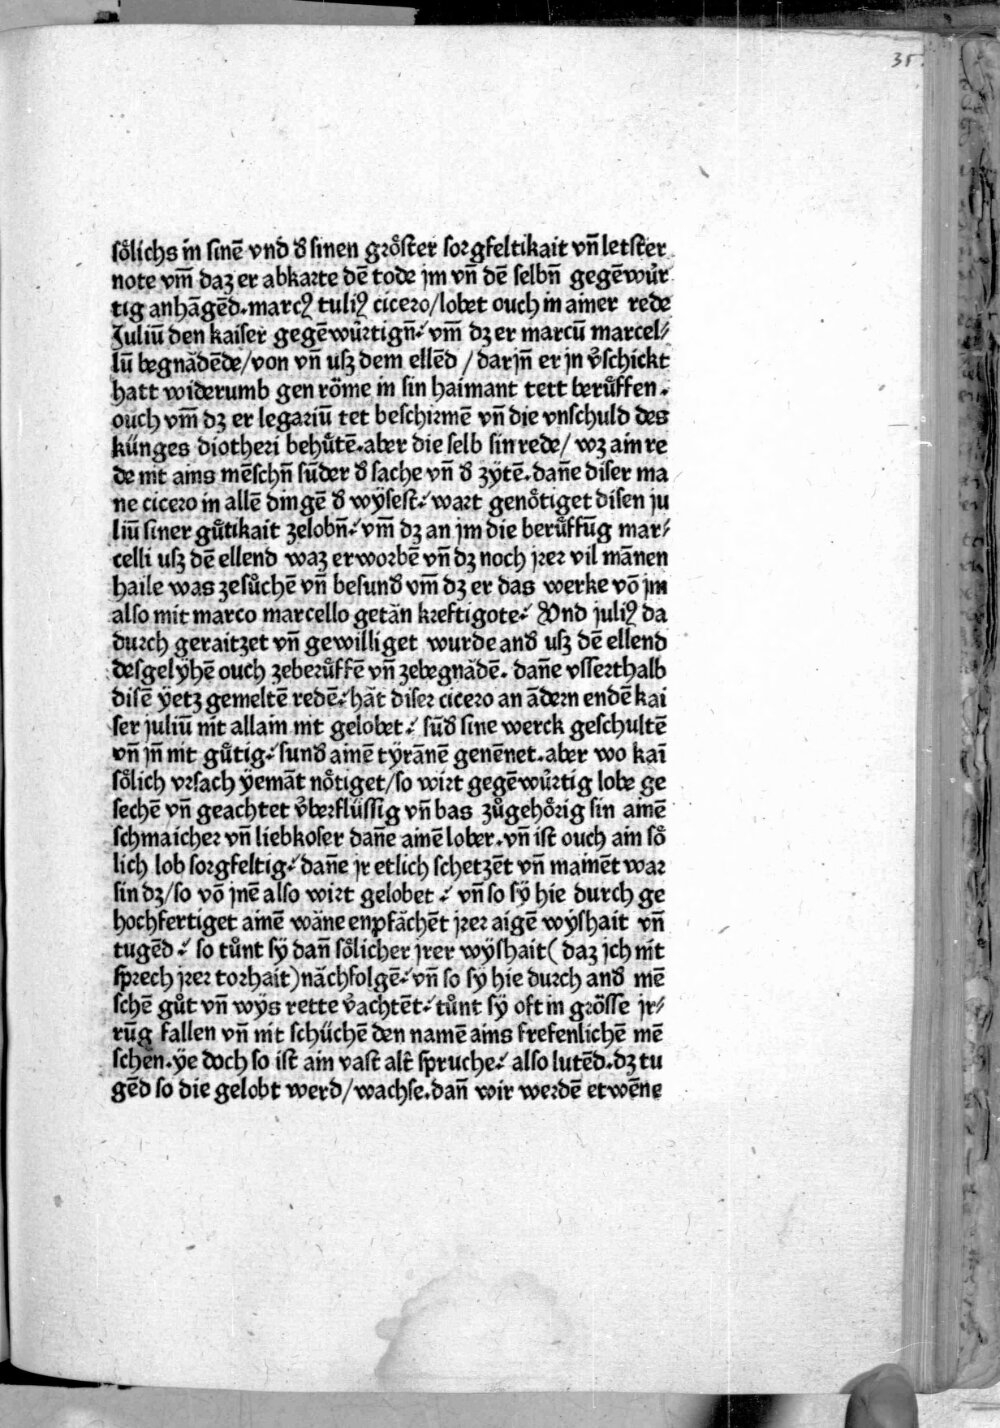 35.
soͤlichs in sinē vnd d̕ sinen groͤster sorgfeltikait vn̄ letster
note vm̄ daz er abkarte dē tode jm vn̄ dē selbn̄ gegēwuͤr
tig anhāgēd. marcꝰ tuliꝰ cicero/lobet ouch in ainer rede
Juliū den kaiser gegēwuͤrtign̄ ⸝ vm̄ dz er marcū marcel⸗
lū begnaͤdēde/von vn̄ usz dem ellēd / darjn̄ er jn v̕schickt
hatt widerumb gen roͤme in sin haimant tett beruͤffen.
ouch vm̄ dz er legariū tet beschirmē vn̄ die vnschuld des
künges diotheri behuͤtē. aber die selb sin rede/ wz ain re
de nit ains mēschn̄ sūder d̕ sache vn̄ d̕ zÿtē. dan̄e diser ma
ne cicero in allē dingē d̕ wÿsest ⸝ wart genoͤtiget disen ju
liū siner guͤtikait zelobn̄ ⸝ vm̄ dz an jm die beruͤffūg mar⸗
celli usz dē ellend waz erworbē vn̄ dz noch jrer vil mānen
haile was zesuͦchē vn̄ besund̕ vm̄ dz er das werke vō jm
also mit marco marcello getaͤn kreftigote ⸝ Vnd juliꝰ da
durch geraitzet vn̄ gewilliget wurde and̕ usz dē ellend
desgelÿhē ouch zeberuͤffē vn̄ zebegnaͤdē. dan̄e vsserthalb
disē ÿetz gemeltē redē ⸝ haͤt diser cicero an ādern endē kai
ser juliū nit allain nit gelobet ⸝ sūd̕ sine werck geschultē
vn̄ jn̄ nit guͤtig ⸝ sund̕ ainē tÿrānē genēnet. aber wo kaī
soͤlich vrsach ÿemāt noͤtiget/so wirt gegēwuͤrtig lobe ge
sechē vn̄ geachtet v̕berflüssig vn̄ bas zuͦgehoͤrig sin ainē
schmaicher vn̄ liebkoser dan̄e ainē lober. vn̄ ist ouch ain soͤ
lich lob sorgfeltig ⸝ dan̄e jr etlich schetzēt vn̄ mainēt war
sin dz/so vō jnē also wirt gelobet ⸝ vn̄ so sÿ hie durch ge
hochfertiget ainē waͤne enpfaͤchēt jrer aigē wÿshait vn̄
tugēd ⸝ so tuͦnt sÿ dan̄ soͤlicher jrer wÿshait (daz jch nit
sprech jrer torhait) naͤchfolgē ⸝ vn̄ so sÿ hie durch and̕ mē
schē guͦt vn̄ wÿs rette v̕achtēt ⸝ tuͦnt sÿ oft in groͤsse jr⸗
rūg fallen vn̄ nit schüchē den namē ains frefenlichē mē
schen. ÿe doch so ist ain vast alt̕ spruche ⸝ also lutēd. dz tu
gēd so die gelobt werd/wachse. dan̄ wir werdē etwēne